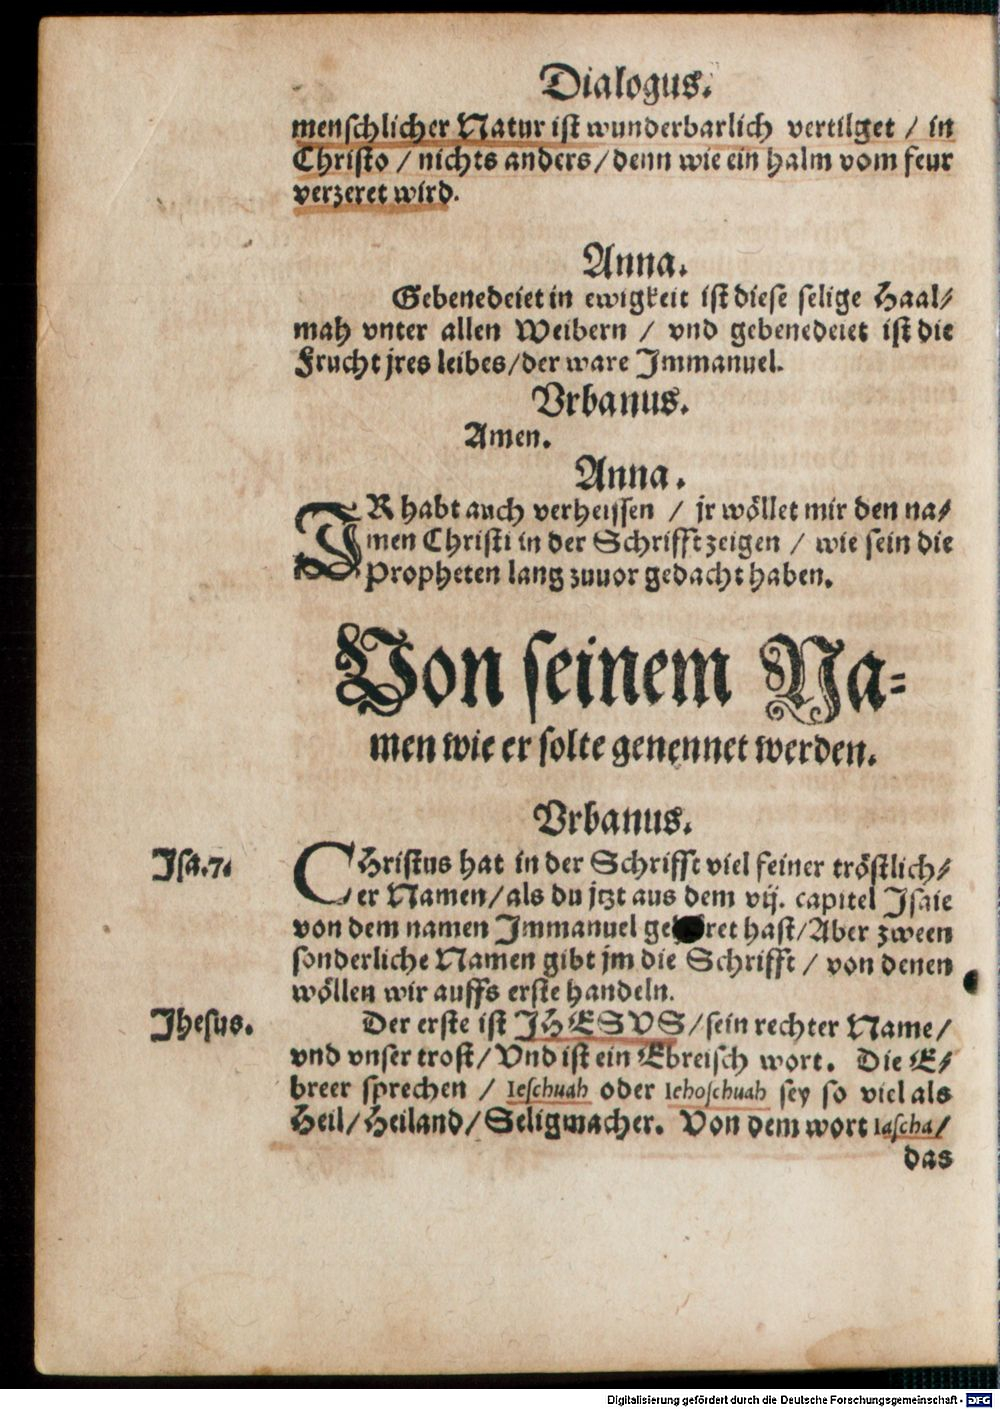 Dialogus.
menschlicher Natur ist wunderbarlich vertilget / in
Christo / nichts anders / denn wie ein halm vom feur
verzeret wird.
Anna.
Gebenedeiet in ewigkeit ist diese selige Haal/
mah vnter allen Weibern / vnd gebenedeiet ist die
Frucht jres leibes / der ware Immanuel.
Vrbanus.
Amen.
Anna.
IR habt auch verheissen / jr wöllet mir den na/
men Christi in der Schrifft zeigen / wie sein die
Propheten lang zuuor gedacht haben.
Von seinem Na=
men wie er solte genennet werden.
Vrbanus.
Isa. 7.
CHristus hat in der Schrifft viel feiner tröstlich/
er Namen / als du jtzt aus dem vij. capitel Isaie
von dem namen Immanuel ge ret hast / Aber zween
sonderliche Namen gibt jm die Schrifft / von denen
wöllen wir auffs erste handeln.
Jhesus.
Der erste ist IHESVS / sein rechter Name /
vnd vnser trost / Vnd ist ein Ebreisch wort. Die E/
breer sprechen / Ieschuah oder Iehoschuah sey so viel als
Heil / Heiland / Seligmacher. Von dem wort Iascha /
das
Digitalisierung gefördert durch die Deutsche Forschungsgemeinschaft - DFG